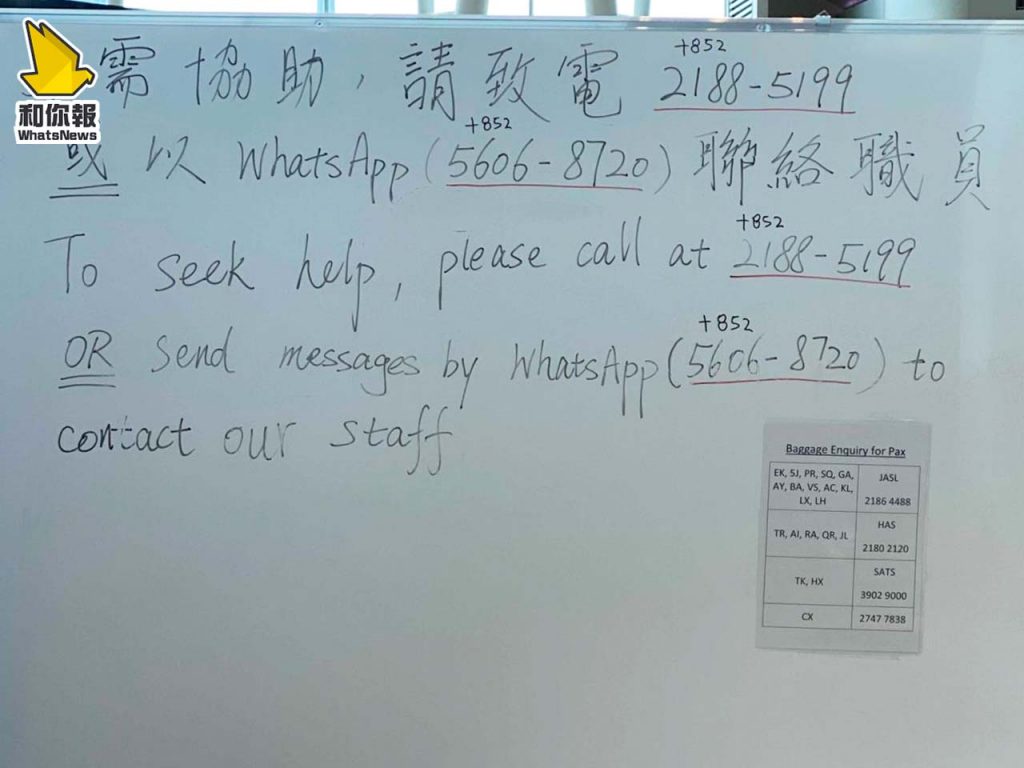 和你報
WhatsNews
需協助，請致電 +852 2188-5199
或以 WhatsApp (+852 5606-8720) 聯絡職員
To seek help, please call at +852 2188-5199
OR send messages by WhatsApp (+852 5606-8720) to
contact our staff
Baggage Enquiry for Pax
EK, SJ, PR, SQ, GA,
AY, BA, VS, AC, KL,
LX, LH
JASL
2186 4488
TR, AI, RA, QR, JL
HAS
2180 2120
TK, HX
SATS
3902 9000
CX
2747 7838